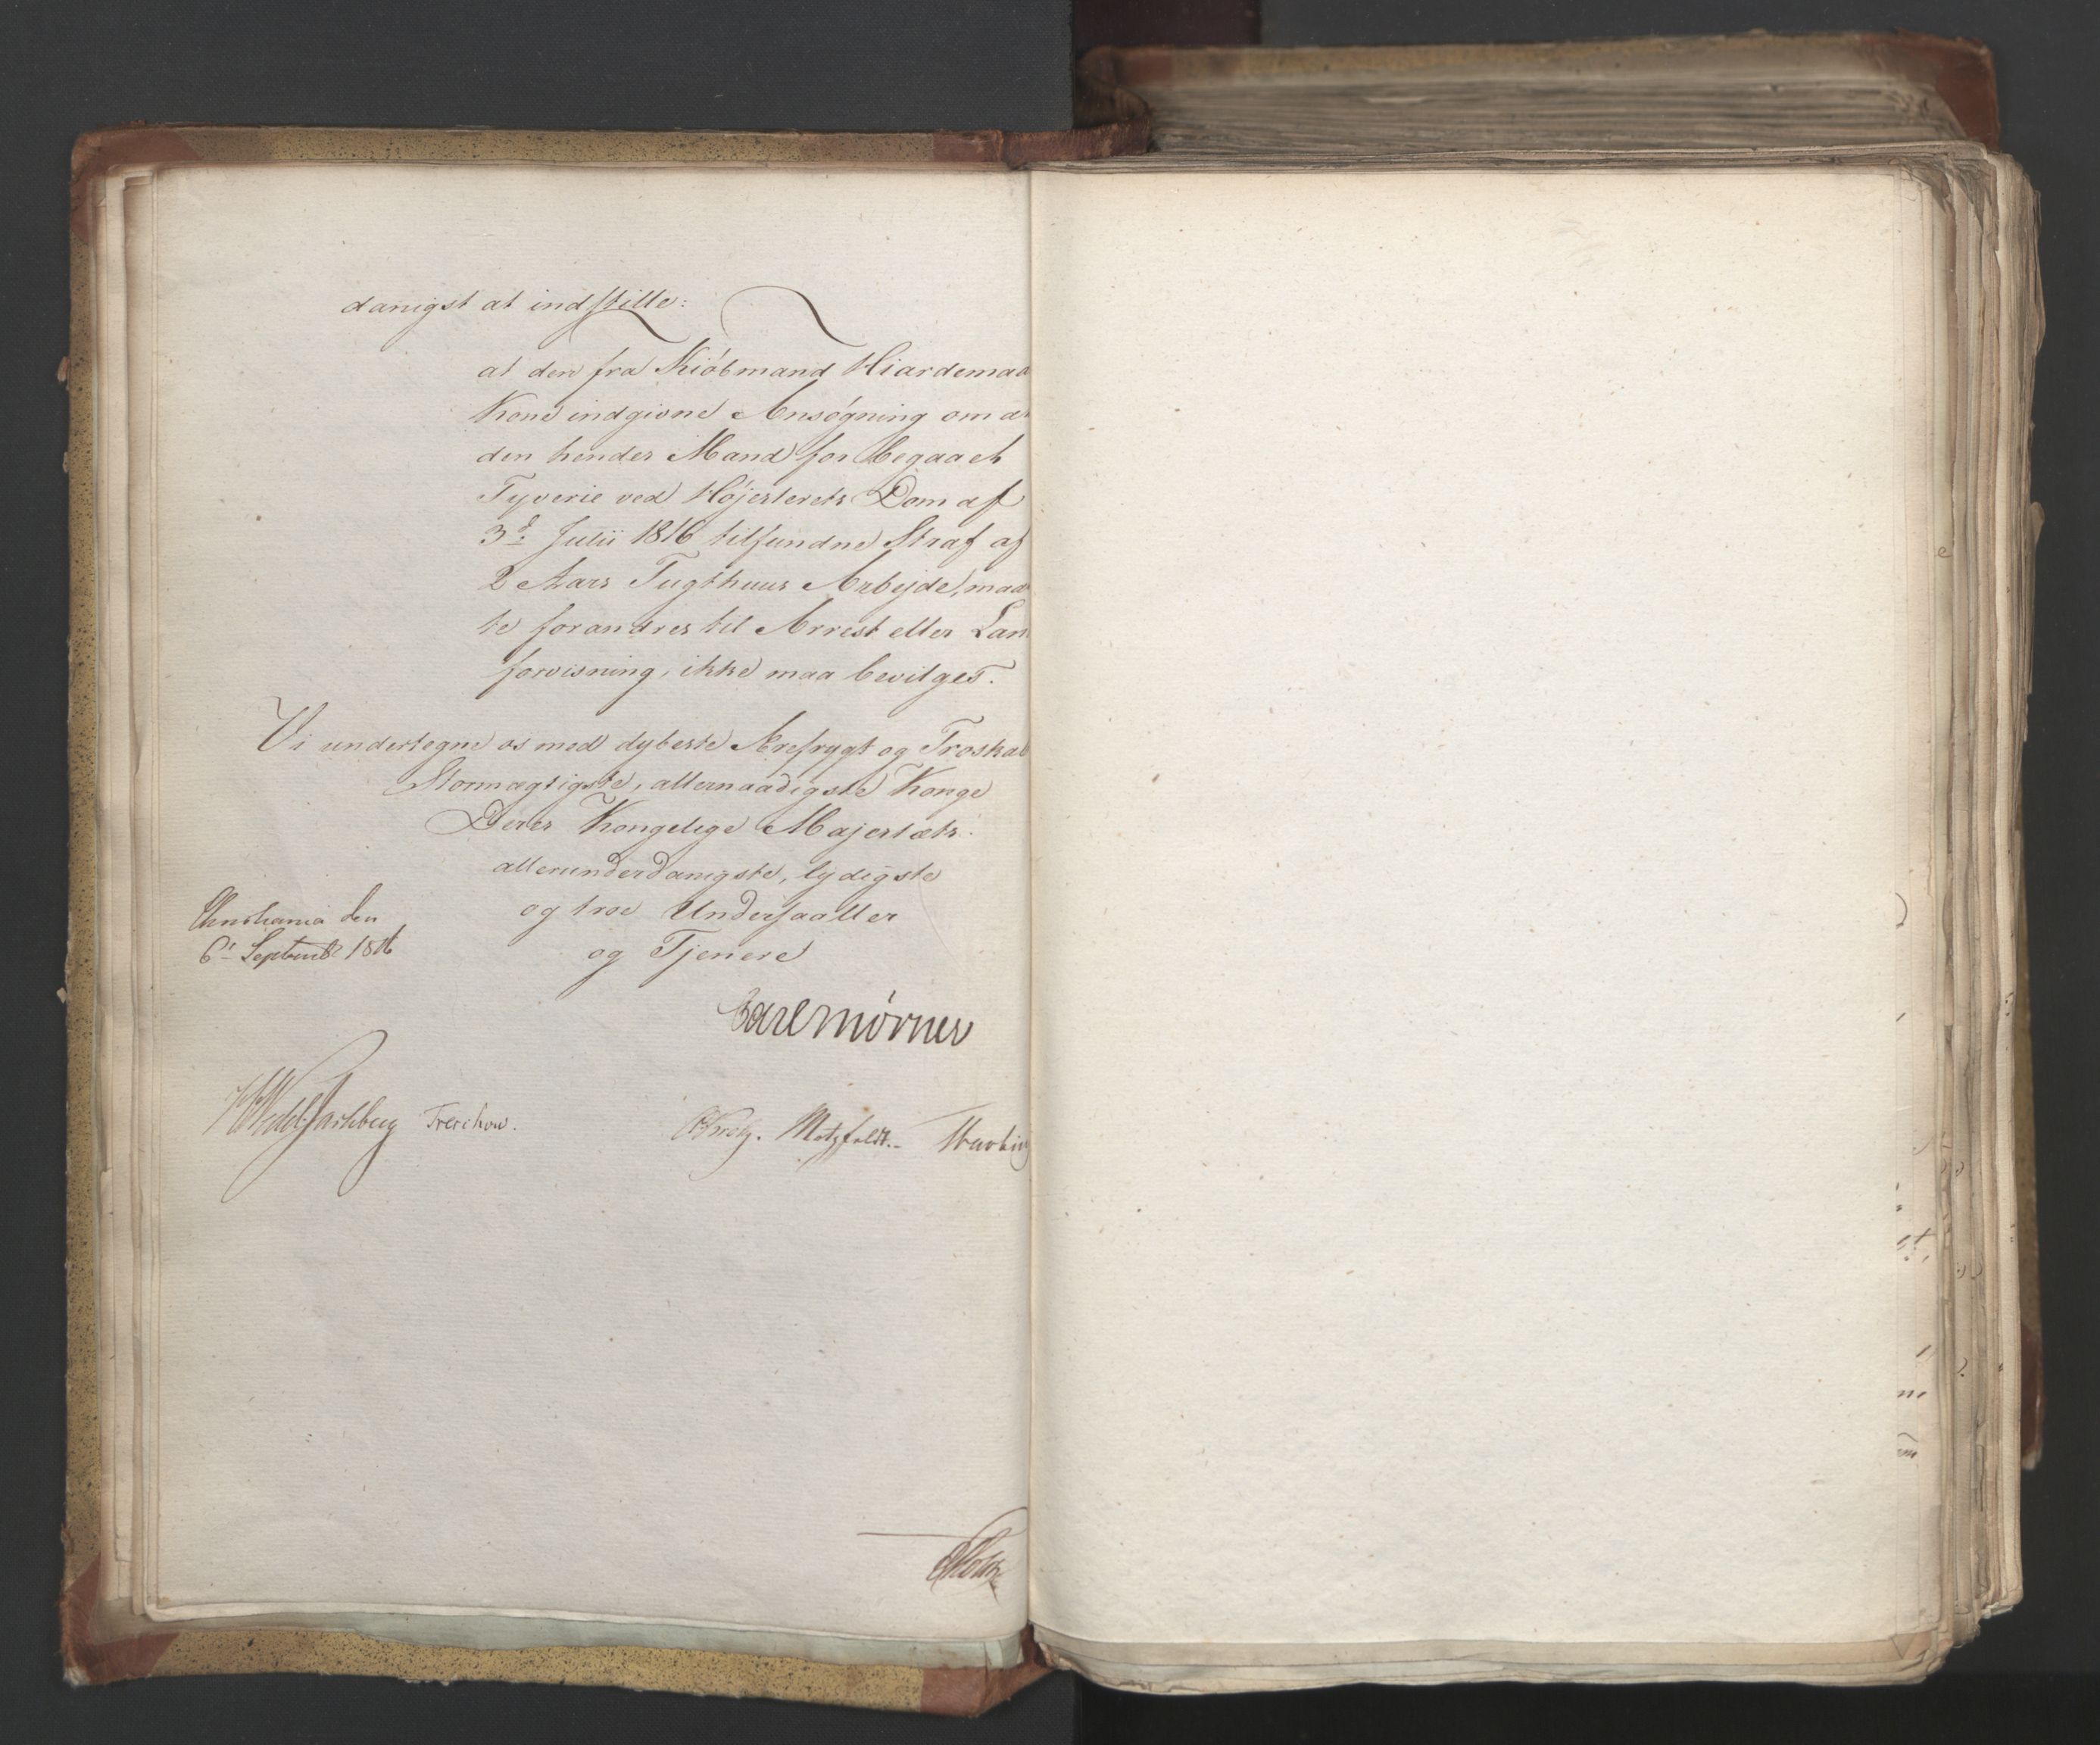 danigst at indstille:
at den fra Kiöbmand Hiardemaa
Kone indgivne Ansøgning om at
den hendes Mand for begaaet
Tyverie ved Højesterets Dom af
3d Julii 1816 tilfundne Straf af
2 Aars Tugthuus Arbejde, maa
te forandres til Arrest eller Lan
forvisning, ikke maa bevilges.
Vi undertegne os med dybeste Ærefrygt og Troskab
Stormægtigste, allernaadigste Konge
Deres Kongelige Majestæts
allerunderdanigste, lydigste
og troe Undersaatter
Christiania den
6t Septembr 1816
og Tjenere
Carl Mörner
HWedel Jarlsberg Treschow.
Krog. Motzfeldt.